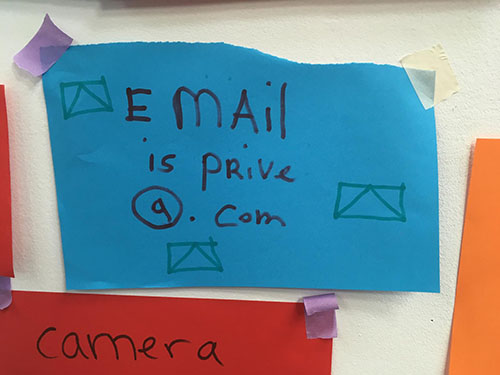 EMAil
is PRive
@.com
camera